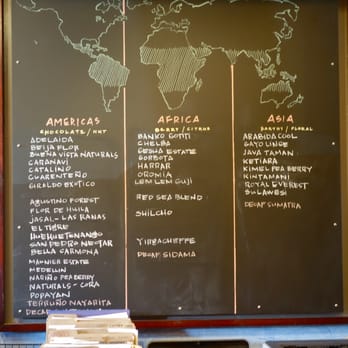 AMERICAS
CHOCOLATE / NUT
ADELAIDA
BEIJA FLOR
BUENA VISTA NATURALS
CARANAVI
CATALINO
CUARENTEÑO
GIRALDO EXOTICO
AGUSTINO FOREST
FLOR DE HUILA
JASAL - LAS RANAS
EL TIGRE
HUEHUETENANGO
SAN PEDRO NECTAR
BELLA CARMONA
MAGNIER ESTATE
MEDELLIN
NARIÑO PEABERRY
NATURALS - CORA
POPAYAN
TERRUÑO NAYARITA
DECAF
AFRICA
BERRY / CITRUS
BANKO GOTITI
CHELBA
GESHA ESTATE
GORBOTA
HARRAR
OROMIA
LEM LEM GUJI
RED SEA BLEND
SHILCHO
YIRGACHEFFE
DECAF SIDAMA
ASIA
EARTHY / FLORAL
ARABIDACOOL
GAYO LINGE
JAVA TAMAN
KETIARA
KIMEL PEABERRY
KINTAMANI
ROYAL EVEREST
SULAWESI
DECAF SUMATRA